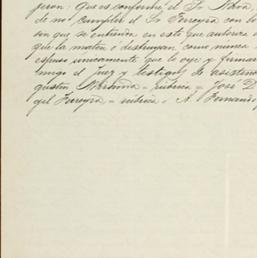 jeron: que es conforme, el Sr Nava,
de no cumplir el Sr Ferreyra con lo
sin que se entienda en esto que autoriza
que la maten ó destruyan como nunca
espuso unicamente que lo oye y firmar
migo el Juez y testigos de asistenc
gustin = rúbrica = José D
gel Ferreyra = rúbrica. A. Fernando